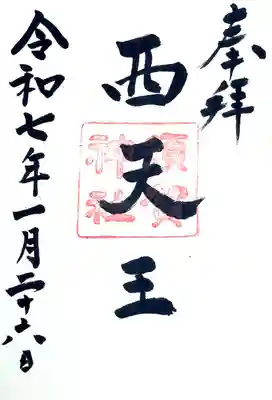 奉拝
西天王
須賀神社
令和七年一月二十六日